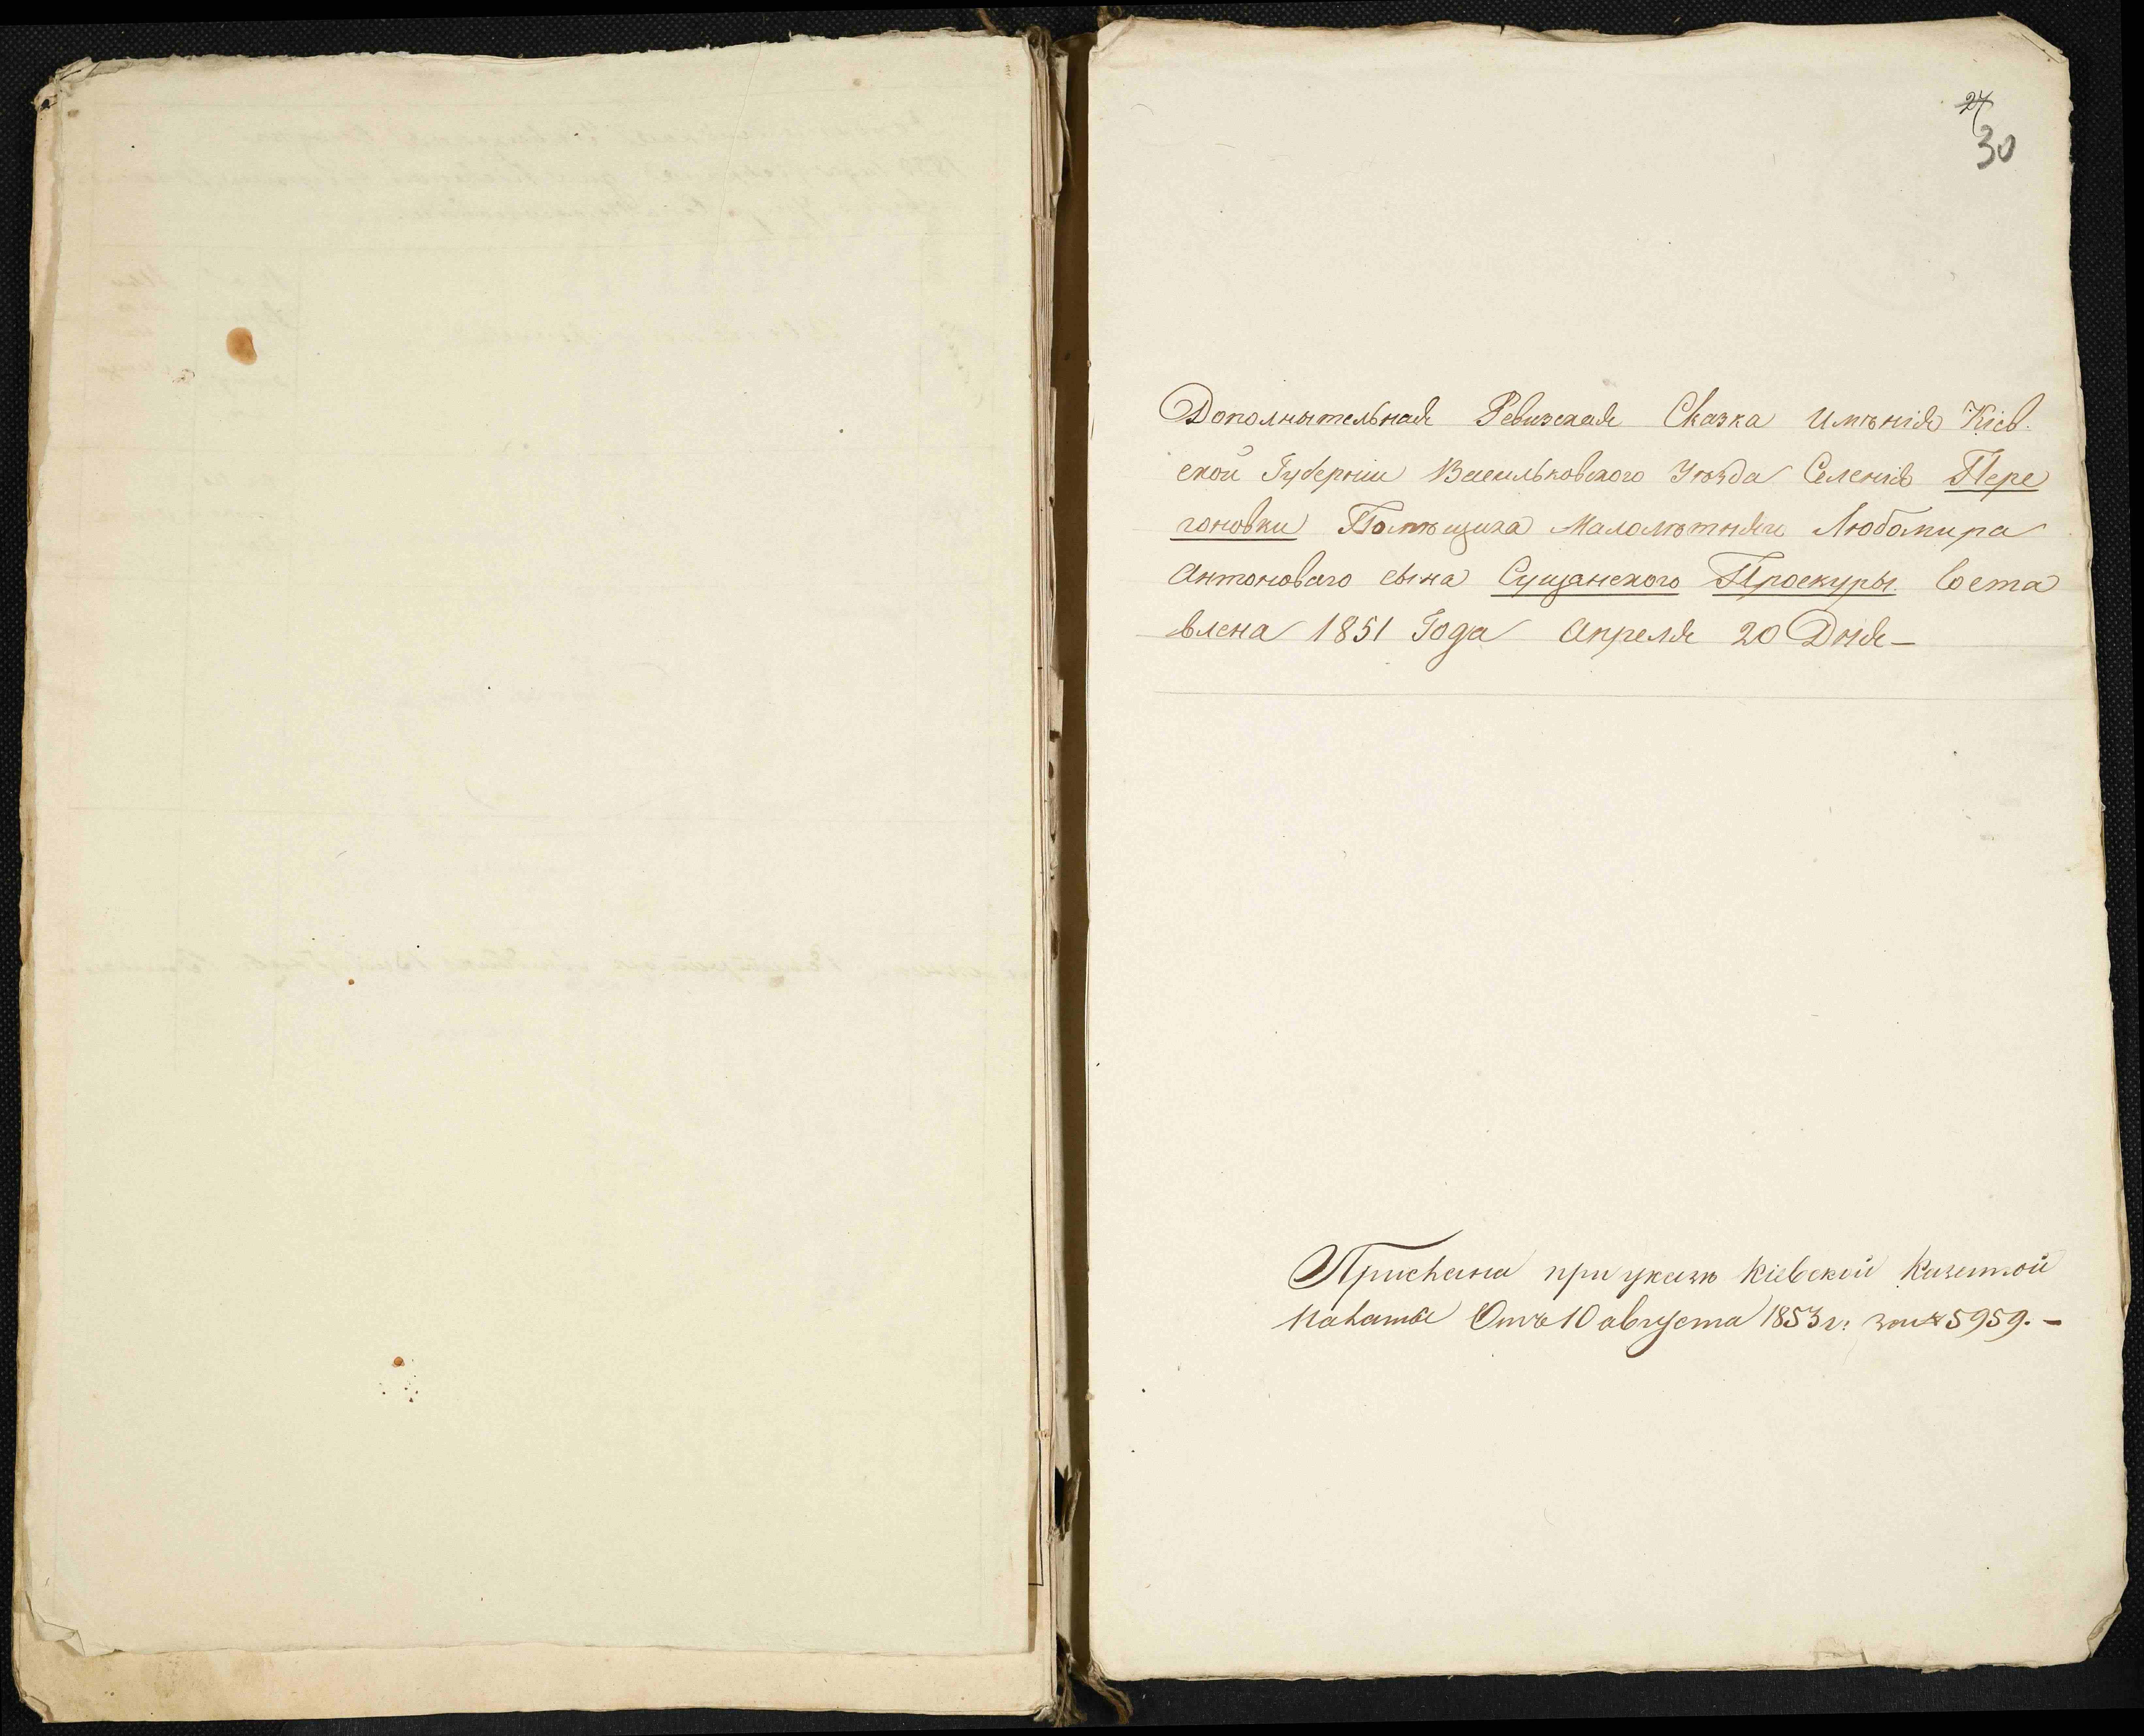 27
30
Дополнительная Ревизская Сказка Имѣнія Кіев.
ской Губерніи Васильковского Уѣзда Селенія Пере
гоновки Помѣщика Малолѣтняго Любомира
Антонового сына Сущанского Проскуры. Соста
влена 1851 Года Апреля 20 Дня —
Прислана при указѣ Кіевской Казенной
Палаты Отъ 10 августа 1853 г: за № 5959. —